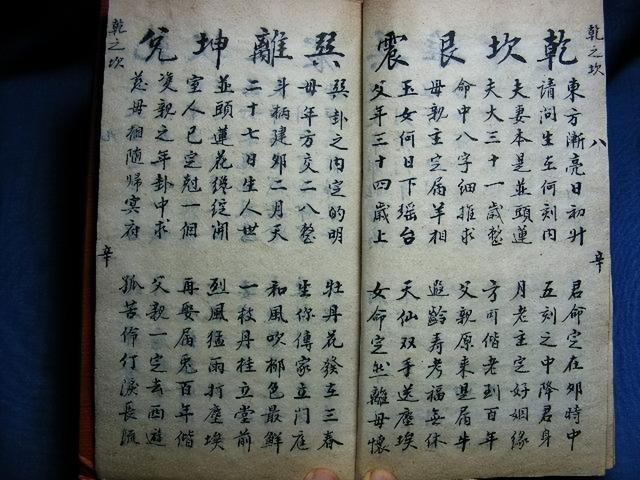 乾之坎
八
辛
乾坎艮震
東方漸亮日初升 君命定在卯時中
請問生在何刻内 五刻之中降君身
夫妻本是並頭蓮 月老主定好姻緣
夫大三十一歲整 方可偕老到百年
命中八字細推求 父親原來是属牛
母親主定属羊相 遐齡寿考福無休
玉女何日下瑶台 天仙双手送塵埃
父年三十四歲上 女命定出離母懷
巽離坤兌
巽卦之内定的明 牡丹花發在三春
母年方交二八整 生你傳家立門庭
斗柄建卯二月天 和風吹柳色最鮮
二十七日生人世 一枝丹桂立堂前
並頭蓮花纔綻開 烈風猛雨打塵埃
室人已定尅一個 再娶属兎百年偕
双親之年卦中求 父親一定去西遊
慈母相隨歸冥府 孤苦伶仃淚長流
乾之坎
辛